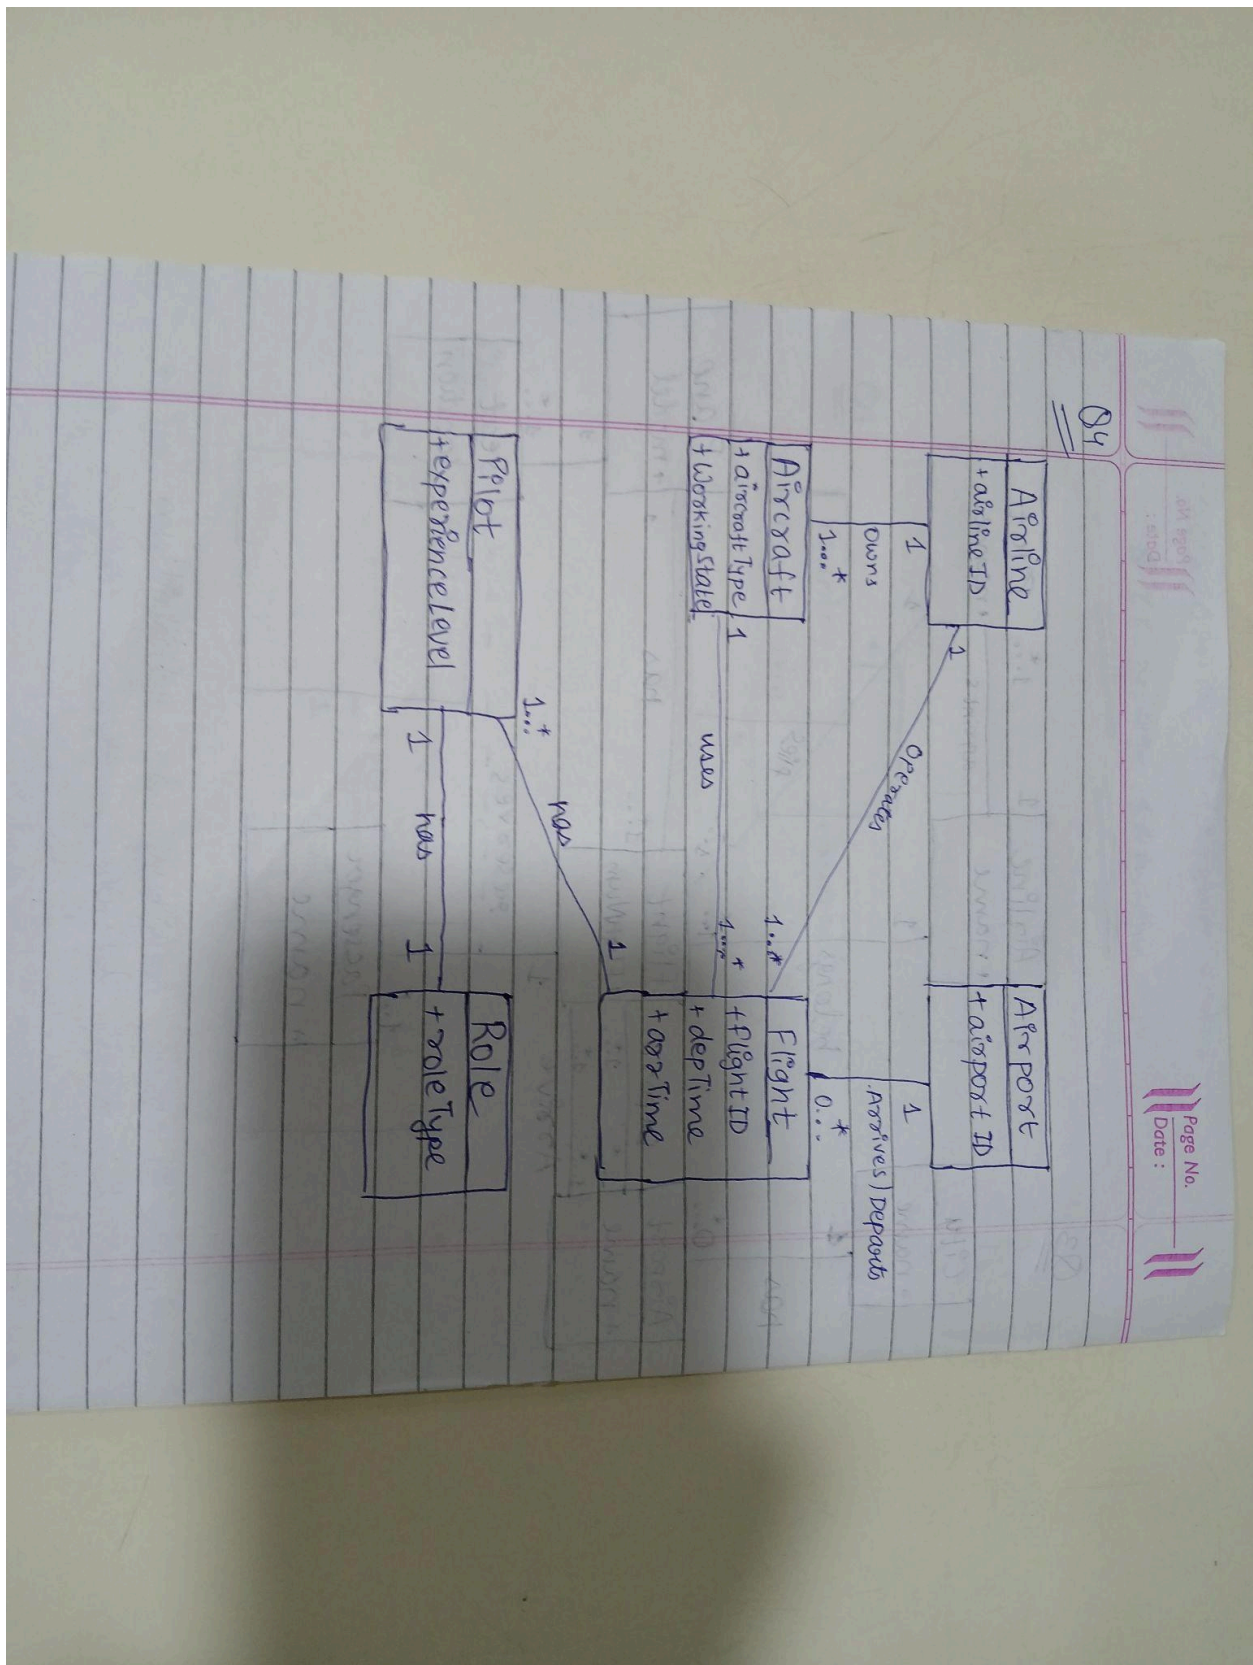 Page No.
Date :
Q4
Airline
+airlineID
Airport
+airport ID
1
owns
1...*
1
Operates
1...*
1
Arrives/Departs
0...*
Aircraft
+aircraftType
+WorkingState
1
uses
1...*
Flight
+flightID
+depTime
+arrTime
1...*
has
1
Pilot
+experiencelevel
1 has 1
Role
+roleType